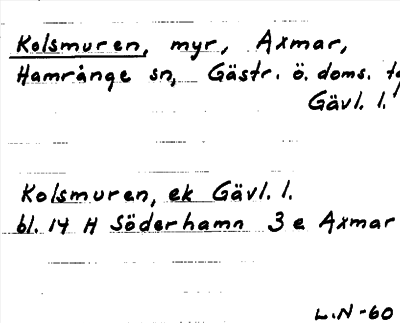 Kolsmuren, myr, Axmar,
Hamrånge sn, Gästr. ö. doms.
Gävl. l.
Kolsmuren, ek Gävl. l.
bl. 14 H Söderhamn 3 e Axmar
L.N-60